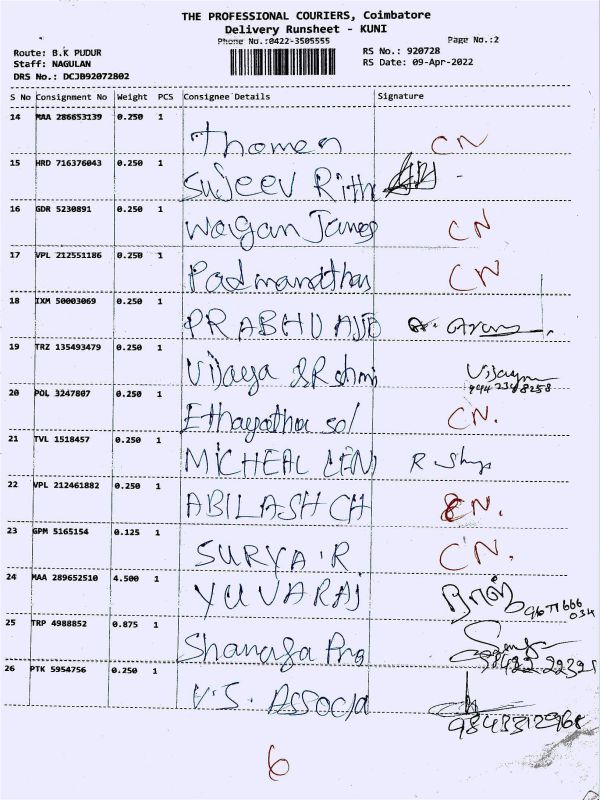 THE PROFESSIONAL COURIERS, Coimbatore
Delivery Runsheet - KUNI
Phone No.:0422-3505555 Page No.:2
Route: B.K PUDUR RS No.: 920728
Staff: NAGULAN RS Date: 09-Apr-2022
DRS No.: DCJB92072802
S No Consignment No Weight PCS Consignee Details Signature
14 MAA 286653139 0.250 1 Thomen CN
15 HRD 716376043 0.250 1 Sujeev Rith
16 GDR 5230891 0.250 1 Wagan James CN
17 VPL 212551186 0.250 1 Padmanathan CN
18 IXM 50003069 0.250 1 PRABHU
19 TRZ 135493479 0.250 1 Vijaya Vijaya
9442348258
20 POL 3247807 0.250 1 Ethayatha sol CN.
21 TVL 1518457 0.250 1 MICHEAL R
22 VPL 212461882 0.250 1 ABILASH CH CN.
23 GPM 5165154 0.125 1 SURYA.R CN.
24 MAA 289652510 4.500 1 YUVARAJ
25 TRP 4988852 0.875 1
26 PTK 5954756 0.250 1 V.S. ASSOCIA
9843312968
6